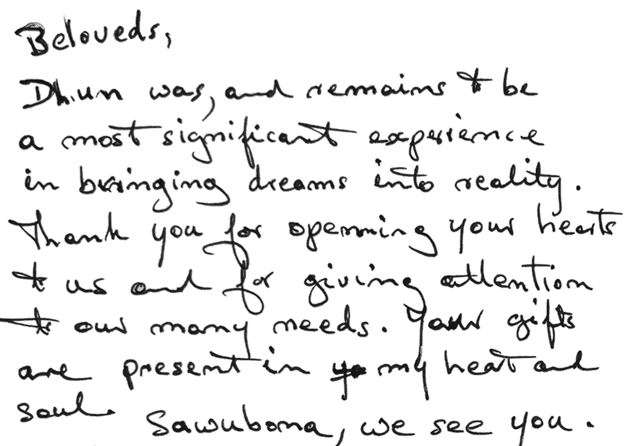 Beloveds,
Dhun was, and remains to be
a most significant experience
in bringing dreams into reality.
Thank you for openning your hearts
to us and for giving attention
to our many needs. Your gifts
are present in my heart and
soul. Sawubona, we see you.